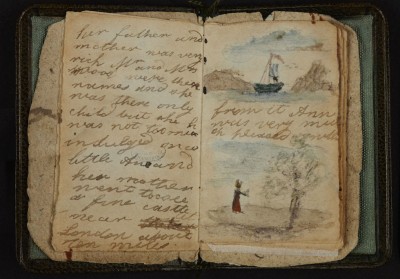 her father and
mother was very
rich Mr and Mrs
were there
names and she
was there only
child but she
was not to
indulged
little Ann and
her mother
went to see
a fine castle
near
London about
ten miles
from it Ann
was very much